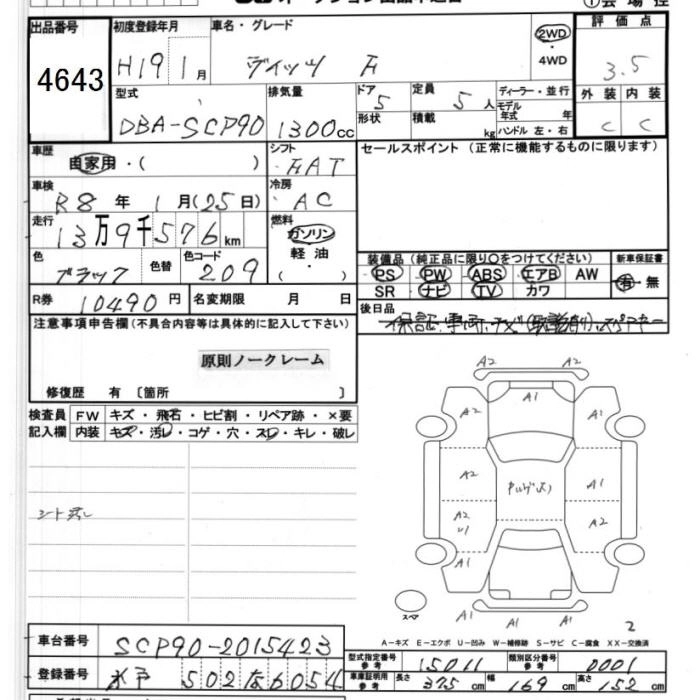 出品番号
4643
初度登録年月
H19 1月
車名・グレード
ヴィッツ F
2WD
・
4WD
評価点
3.5
外装 内装
C C
型式
DBA-SCP90
排気量
1300cc
ドア
5
形状
定員
5人
積載
kg
ディーラー・並行
モデル
年式 年
ハンドル 左・右
車歴
自家用・( )
シフト
FAT
セールスポイント (正常に機能するものに限ります)
車検
R8年 1月(25日)
冷房
AC
走行
13万9千576km
燃料
ガソリン
軽油
( )
色
ブラック
色替
色コード
209
装備品 (純正品に限り○をつけてください)
PS PW ABS エアB AW
SR ナビ TV カワ
新車保証書
有・無
R券 10490円
名変期限 月 日
後日品
注意事項申告欄 (不具合内容等は具体的に記入して下さい)
原則ノークレーム
修復歴 有 〔箇所 〕
検査員
記入欄
FW キズ・飛石・ヒビ割・リペア跡・×要
内装 キズ・汚レ・コゲ・穴・スレ・キレ・破レ
A2
A1
A2 A2
A2 A1
A2 A2
A1
A1 A1
スペア
2
A-キズ E-エクボ U-凹み W-補修跡 S-サビ C-腐食 XX-交換済
車台番号 SCP90-2015423
登録番号 水戸 502 な 6054
型式指定番号
参考
15011
類別区分番号
参考
0001
車庫証明用
参考
長さ 375cm 幅 169cm 高さ 152cm